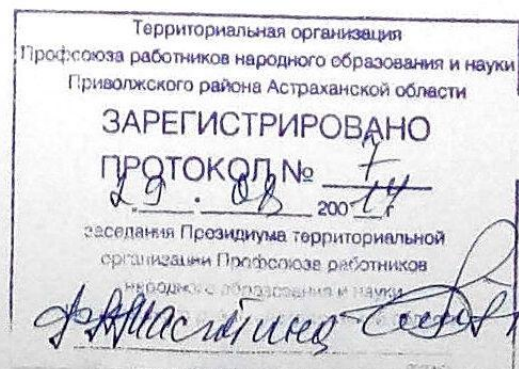 Территориальная организация
Профсоюза работников народного образования и науки
Приволжского района Астраханской области
ЗАРЕГИСТРИРОВАНО
ПРОТОКОЛ № 7
29. 08 200 14 г
заседания Президиума территориальной
организации Профсоюза работников
народного образования и науки